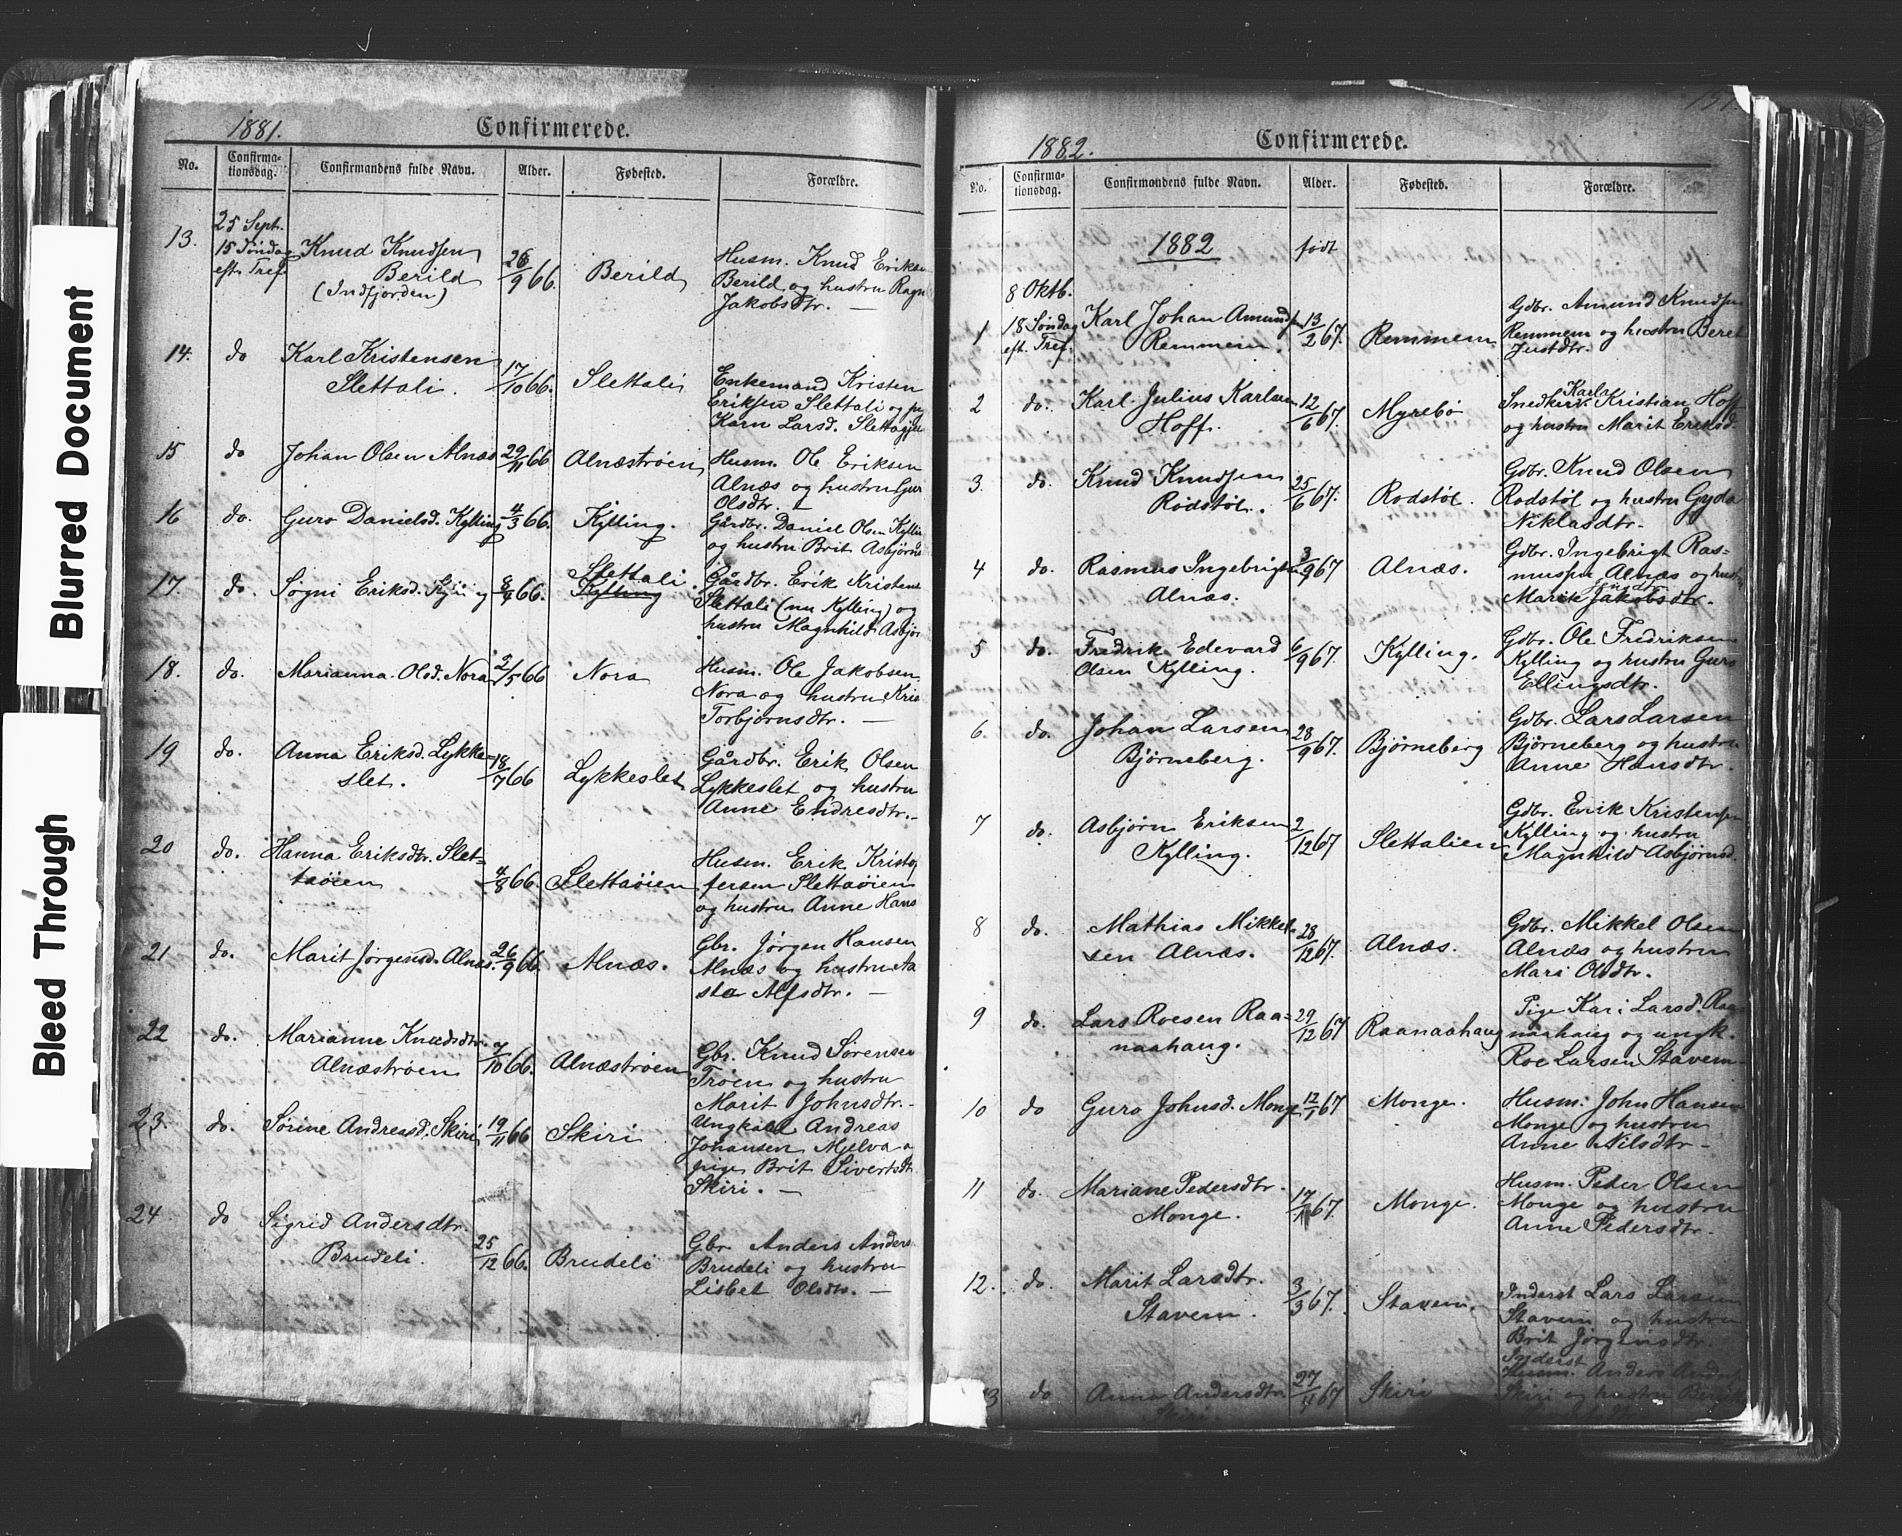 Blurred Document
Bleed Through
1881.
Confirmerede.
No.
Confirma-
tionsdag.
Confirmandens fulde Navn.
Alder.
Fødested.
Forældre.
13.
25 Sept.
15 Søndag
eft. Tref.
Knud Knudsen
Berild
(Indfjorden)
26/9 66.
Berild
Husm. Knud Eriks
Berild og hustru Ragn
Jakobsdtr. —
14.
do
Karl Kristensen
Slettali.
17/10 66.
Slettali
Enkemand Kristen
Eriksen Slettali og
Karn Larsd.
15
do
Johan Olsen Alnæs
29/11 66
Alnæstrøen
Husm. Ole Eriksen
Alnæs og hustru Guri
Olsdtr. —
16
do.
Guro Danielsd. Kylling
4/3 66.
Kylling.
Gårdbr. Daniel Olsen Kyllin
og hustru Brit Asbjørns
17.
do
Søgni Eriksd. Kylling
8/9 66.
Slettali.
Kylling
Gårdbr. Erik Kristens
Slettali (nu Kylling) og
hustru Magnhild Asbjør
18.
do.
Marianna Olsd. Nora
2/5 66
Nora
Husm. Ole Jakobsen
Nora og hustru Kris
Torbjørnsdtr. —
19
do.
Anna Eriksd. Lykke-
slet.
18/7 66
Lykkeslet
Gårdbr. Erik Olsen
Lykkeslet og hustru
Anne Endresdtr.-
20
do.
Hanna Eriksdtr. Slet-
taøien
4/8 66.
Slettaøien
Husm. Erik Kristof
fersen Slettaøien
og hustru Anne Hans
21
do.
Marit Jørgensd. Alnæs.
26/9 66.
Alnæs.
Gbr. Jørgen Hansen
Alnæs og hustru Aa
sta Alfsdtr. —
22
do.
Marianne Knudsdtr.
Alnæstrøen
7/10 66.
Alnæstrøen
Gbr. Knud Sørensen
Trøen og hustru
Marit Johnsdtr.-
23.
do.
Sørine Andreasd. Skiri
19/11 66
Skiri
Ungkarl Andreas
Johansen Mjelva o
pige Brit Sivertsdt
Skiri. —
24
do
Sigrid Andersdtr.
Brudeli.
25/12 66.
Brudeli
Gbr. Anders Anders
Brudeli og hustru
Lisbet Olsdtr. —
1882.
Confirmerede.
No.
Confirma-
tionsdag.
Confirmandens fulde Navn.
Alder.
Fødested.
Forældre.
1882
født
1
8 Oktb.
18 Søndag
eft. Tref.
Karl Johan Amundsen
Remmem.
13/2 67.
Remmem
Gdbr. Amund Knudsen
Remmem og hustru Beret
Justdtr.
2
do.
Karl Julius Karlsen
Hoff.
12/6 67.
Myrebø
Karla
Snedker Kristian Hoff
og hustru Marit Eriksd.
3.
do.
Knud Knudsen
Rødstøl.
25/6 67.
Rødstøl.
Gdbr. Knud Olsen
Rødstøl og hustru Gyda
Niklasdtr.
4
do.
Rasmus Ingebrigtsen
Alnæs.
3/9 67
Alnæs.
Gdbr. Ingebrigt Ras-
mussen Alnæs og hust
Marit Jakobsdtr.
5
do.
Fredrik Edevard
Olsen Kylling.
6/9 67.
Kylling.
Gdbr. Ole Fredriksen
Kylling og hustru Guro
Ellingsdtr.
6.
do
Johan Larsen
Bjørneberg.
28/9 67.
Bjørneberg
Gdbr. Lars Larsen
Bjørneberg og hustru
Anne Hansdtr.
7
do.
Asbjørn Eriksen
Kylling.
2/12 67
Slettalien
Gdbr. Erik Kristensen
Kylling og hustru
Magnhild Asbjørnsd.
8
do.
Mathias Mikkel-
sen Alnæs.
28/12 67.
Alnæs.
Gdbr. Mikkel Olsen
Alnæs og hustru
Mari Olsdtr.
9
do.
Lars Roesen Raa-
naahaug.
29/12 67
Raanaahaug
Pige Kari Larsd. Raa
naahaug og ungk.
Roe Larsen Stavem
10
do
Guro Johnsd. Monge
12/1 67
Monge.
Husm. John Hansen
Monge og hustru
Anne Nilsdtr —
11
do.
Mariane Pedersdtr.
Monge.
17/1 67.
Monge.
Husm. Peder Olsen
Monge og hustru
Anne Pedersdtr.
12.
do
Marit Larsdtr.
Stavem.
3/3 67.
Stavem.
Inderst Lars Larsen
Stavem og hustru
Brit Jørgensdtr.
3
do
Anna Andersdtr
Skiri.
27/4 67
Skiri
Inderst
Husm. Anders Anders
Skiri og hustru Berit